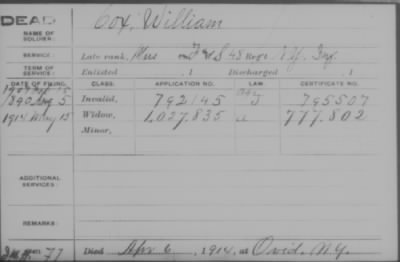 DEAD
NAME OF SOLDIER: Cox, William
SERVICE: Late rank, Mus F&S 48 Regt. N.Y. Inf.
TERM OF SERVICE: Enlisted , 1 Discharged , 1
DATE OF FILING. CLASS. APPLICATION NO. LAW. CERTIFICATE NO.
1890 Aug 5 Invalid, 792145 J 795507
1914 May 15 Widow, 1,027,835 a 777.802
Minor,
ADDITIONAL SERVICES:
REMARKS:
77 Died Apr 6, 1914, at Ovid, N.Y.